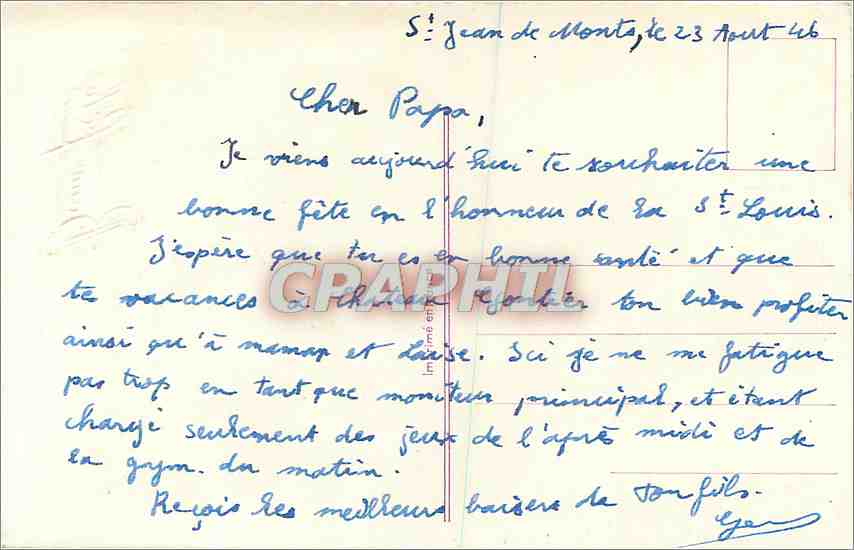 St Jean de Monts, le 23 Aout 46
Cher Papa,
Je viens aujourd'hui te souhaiter une
bonne fête en l'honneur de la St Louis.
J'espère que tu es en bonne santé et que
te vacances à Château Gontier ton bien profiter
ainsi qu'à maman et Luise. Ici je ne me fatigue
pas trop en tant que moniteur principal, et étant
chargé seulement des jeux de l'après midi et de
la gym. du matin.
Reçois les meilleurs baisers de ton fils.
CPAPHIL
Imprimé en